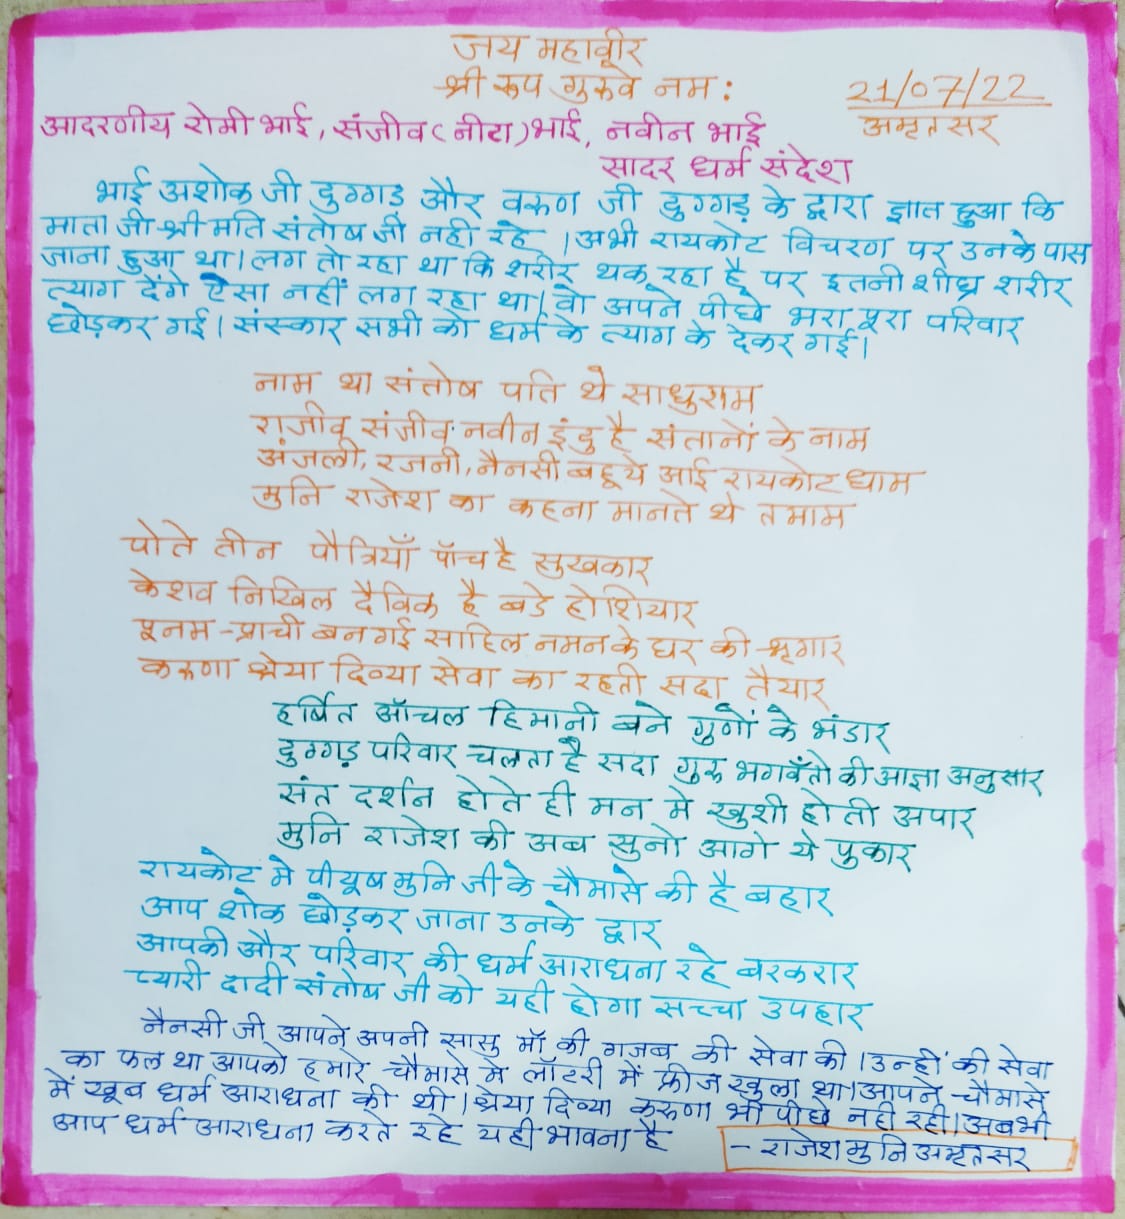 जय महावीर
श्री रूप गुरुवे नम:
21/07/22
अमृतसर
आदरणीय रोमी भाई, संजीव (नीटा) भाई, नवीन भाई
सादर धर्म संदेश
भाई अशोक जी दुग्गड़ और वरुण जी दुग्गड़ के द्वारा ज्ञात हुआ कि
माता जी श्री मति संतोष जी नही रहे । अभी रायकोट विचरण पर उनके पास
जाना हुआ था। लग तो रहा था कि शरीर थक रहा है पर इतनी शीघ्र शरीर
त्याग देंगे ऐसा नहीं लग रहा था। वो अपने पीछे भरा पूरा परिवार
छोड़कर गई। संस्कार सभी को धर्म के त्याग के देकर गई।
नाम था संतोष पति थे साधुराम
राजीव संजीव नवीन इंदु है संतानों के नाम
अंजली, रजनी, नैनसी बहूये आई रायकोट धाम
मुनि राजेश का कहना मानते थे तमाम
पोते तीन पौत्रियाँ पॉच है सुखकार
केशव निखिल दैविक है बडे होशियार
पूनम - प्राची बन गई साहिल नमन के घर की श्रृगार
करुणा श्रेया दिव्या सेवा का रहती सदा तैयार
हर्षित ऑचल हिमानी बने गुणों के भंडार
दुग्गड़ परिवार चलता है सदा गुरु भगवँतो की आज्ञा अनुसार
संत दर्शन होते ही मन मे खुशी होती अपार
मुनि राजेश की अब सुनो आगे ये पुकार
रायकोट मे पीयूष मुनि जी के चौमासे की है बहार
आप शोक छोड़कर जाना उनके द्वार
आपकी और परिवार की धर्म आराधना रहे बरकरार
प्यारी दादी संतोष जी को यही होगा सच्चा उपहार
नैनसी जी आपने अपनी सासु मॉ की गजब की सेवा की। उन्हीं की सेवा
का फल था आपको हमारे चौमासे मे लॉटरी में फ्रीज खुला था। आपने चौमासे
में खूब धर्म आराधना की थी। श्रेया दिव्या करुणा भी पीछे नही रही। अब भी
आप धर्म आराधना करते रहे यही भावना है
- राजेश मुनि अमृतसर